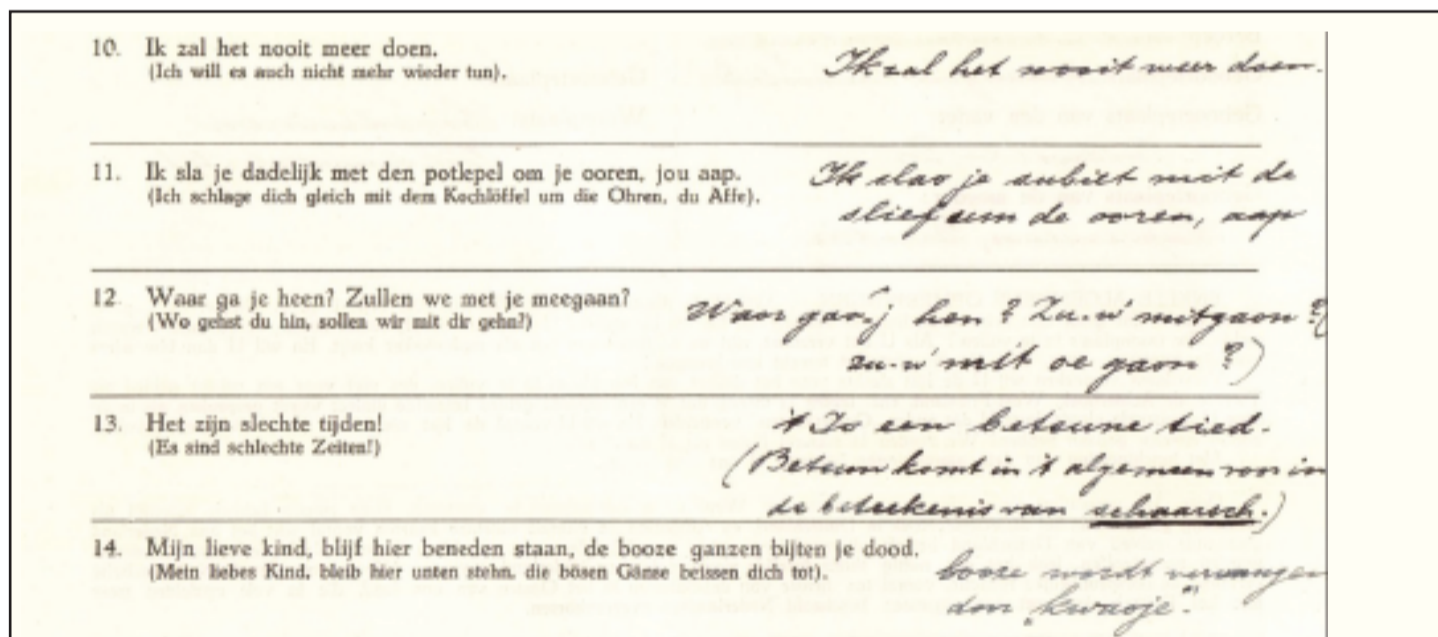 10. Ik zal het nooit meer doen.
(Ich will es auch nicht mehr wieder tun).
Ik zal het nooit weer doen.
11. Ik sla je dadelijk met den potlepel om je ooren, jou aap.
(Ich schlage dich gleich mit dem Kochlöffel um die Ohren, du Affe).
Ik slao je subiet mit de
slief um de ooren, aap
12. Waar ga je heen? Zullen we met je meegaan?
(Wo gehst du hin, sollen wir mit dir gehn?)
Waor gao-j hen? Zu-w' mitgaon? (
zu-w' mit oe gaon?)
13. Het zijn slechte tijden!
(Es sind schlechte Zeiten!)
't Is een beteune tied.
(Beteun komt in 't algemeen voor in
de beteekenis van schaarsch.)
14. Mijn lieve kind, blijf hier beneden staan, de booze ganzen bijten je dood.
(Mein liebes Kind, bleib hier unten stehn, die bösen Gänse beissen dich tot).
booze wordt vervangen
don „kwaoje".